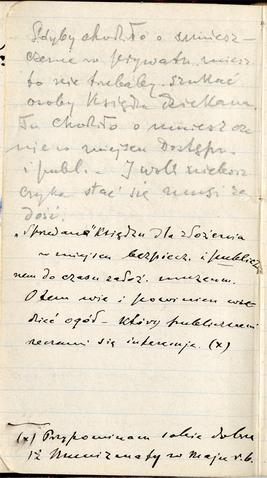 Gdyby chodziło o umiesz-
czenie w prywatn. miesz
to nie trzebaby szukać
osoby Księdza Dziekana.
Tu chodziło o umieszcze
nie w miejscu Dostępn.
i publ. - I woli
stać się musi za
dość.
"Sprzedana" Księdzu dla złożenia
w miejscu bezpiecz. i publicz
nem do czasu założ. muzeum.
O tem wie i powinien wie
dzieć ogół - który publicznemi
sprawami się interesuje. (x)
(x) Przypominam sobie dobrze
w maju r. b.